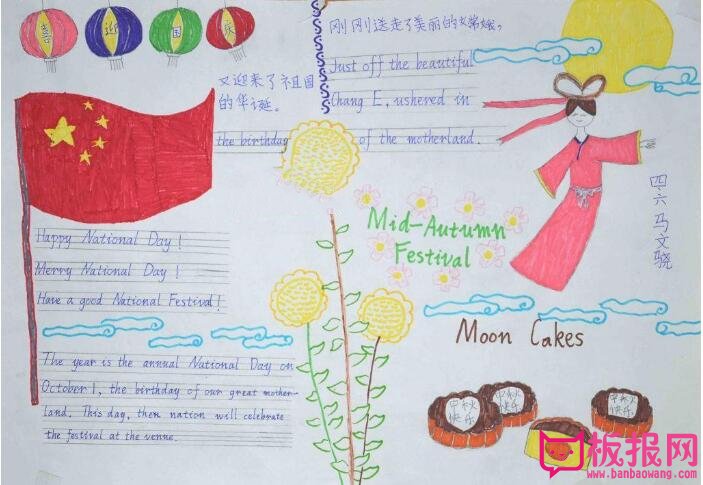 喜
迎
国
庆
刚刚送走了美丽的女常娥,
Just off the beautiful
Chang E, ushered in
又迎来了祖国
的华诞。
the birthday of the motherland.
Mid-Autumn
Festival
四六马文骁
Happy National Day!
Merry National Day!
Have a good National Festival!
Moon Cakes
The year is the annual National Day on
October 1, the birthday of our great mother-
land. This day, then nation will celebrate
the festival at the venne.
中秋
快乐
中秋
快乐
中秋
快乐
板报网
www.banbaowang.com